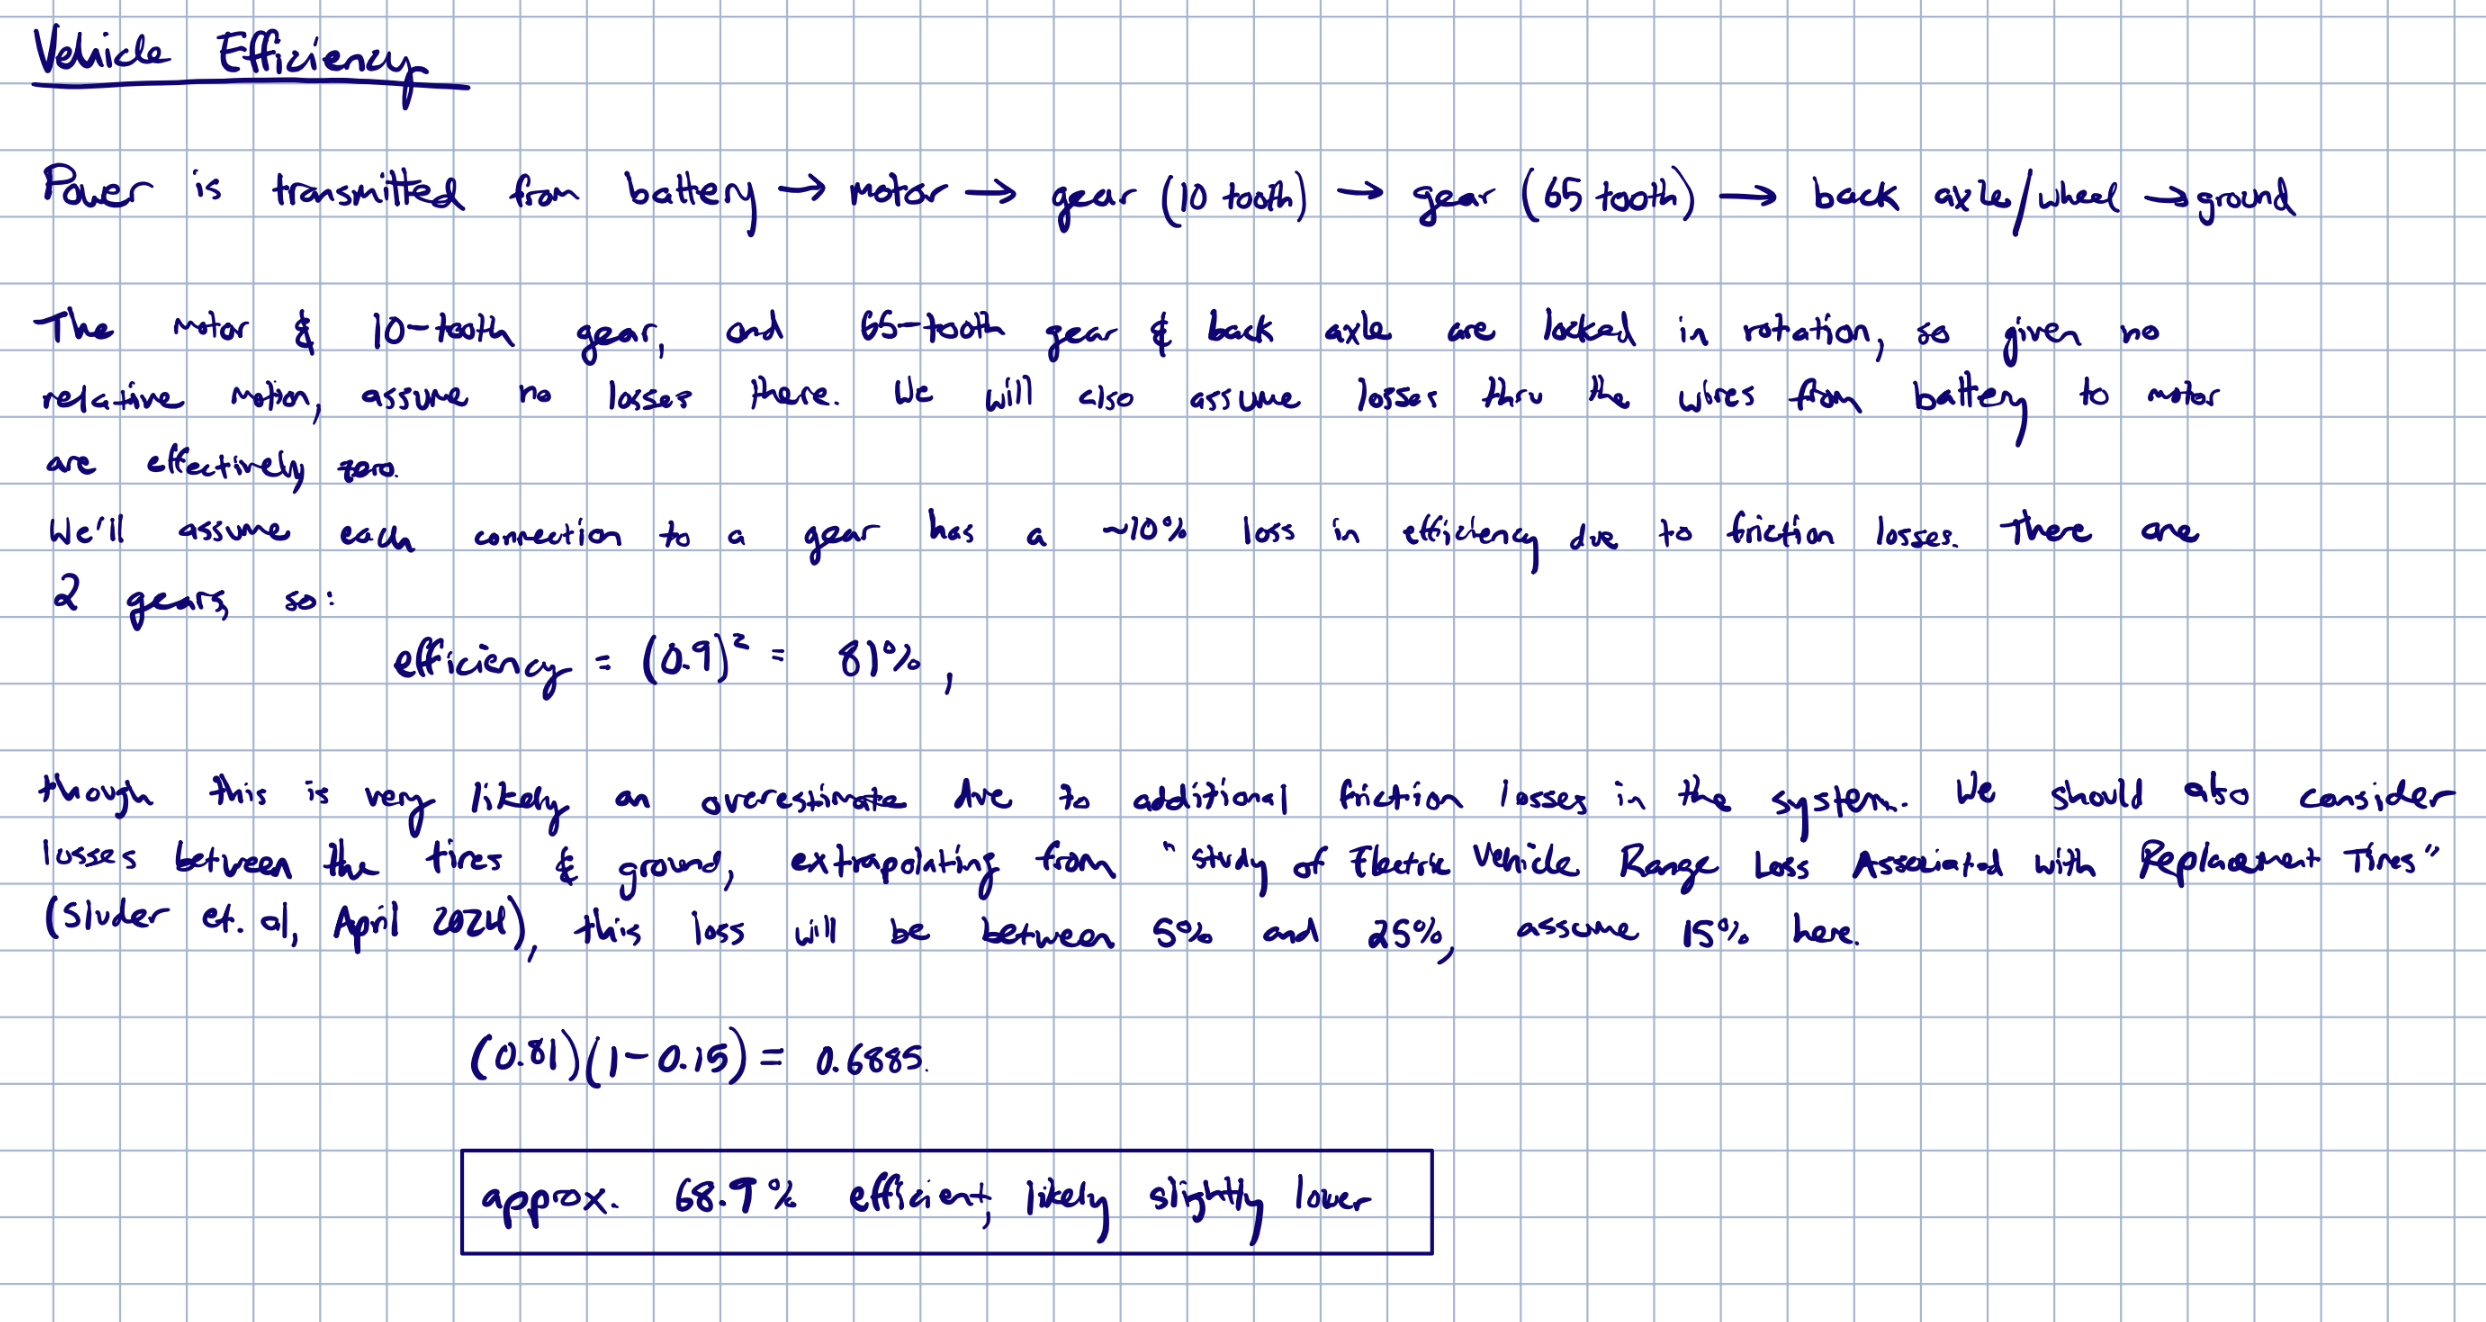 Vehicle Efficiency
Power is transmitted from battery → motor → gear (10 tooth) → gear (65 tooth) → back axle/wheel → ground
The motor & 10-tooth gear, and 65-tooth gear & back axle are locked in rotation, so given no
relative motion, assume no losses there. We will also assume losses thru the wires from battery to motor
are effectively zero.
We'll assume each connection to a gear has a ~10% loss in efficiency due to friction losses. There are
2 gears, so:
efficiency = (0.9)² = 81%,
though this is very likely an overestimate due to additional friction losses in the system. We should also consider
losses between the tires & ground, extrapolating from "study of Electric Vehicle Range Loss Associated with Replacement Tires"
(Sluder et. al, April 2024), this loss will be between 5% and 25%, assume 15% here.
(0.81)(1-0.15) = 0.6885.
approx. 68.9% efficient, likely slightly lower